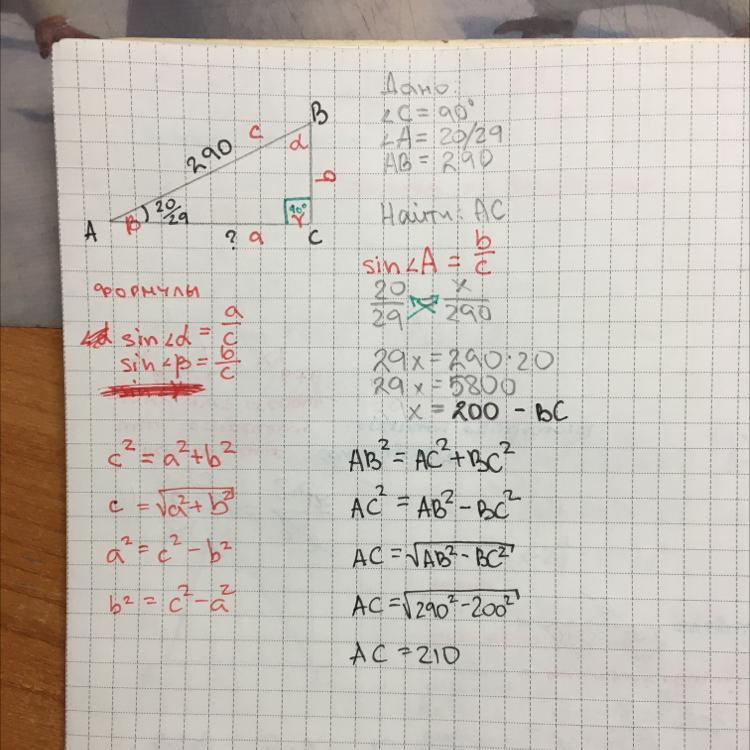 B
c
α
290
b
20/29
90°
γ
A
β
? a
C
Дано:
∠C = 90°
∠A = 20/29
AB = 290
Найти: AC
sin∠A = b/c
20/29 x/290
29x = 290·20
29x = 5800
x = 200 - BC
формулы
sin∠α = a/c
sin∠β = b/c
c² = a²+b²
c = √a²+b²
a² = c² - b²
b² = c² - a²
AB² = AC²+BC²
AC² = AB² - BC²
AC = √AB² - BC²
AC = √290² - 200²
AC = 210